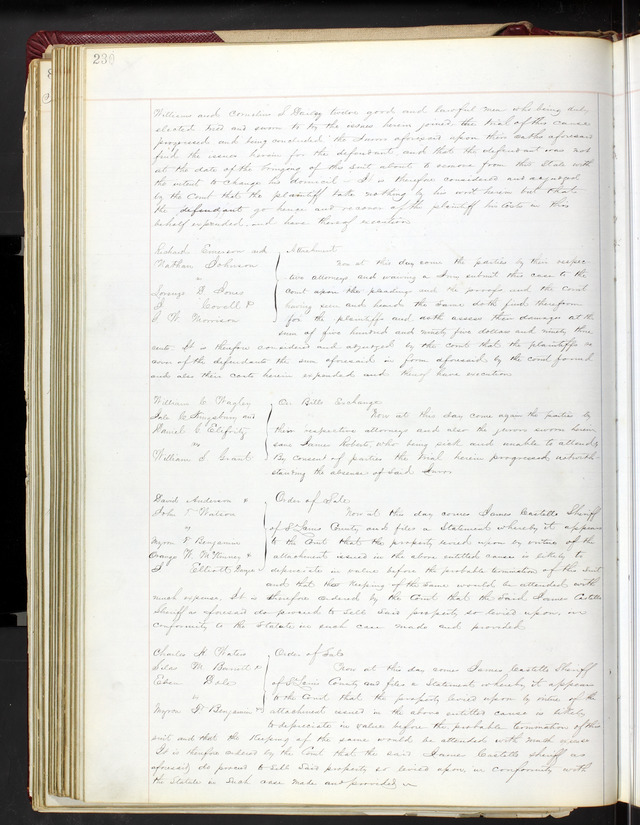 230
Williams and Cornelius S Dailey twelve good and lawful men who being duly
elected tried and sworn to try the issues herein joined the trial of this cause
progressed and being concluded the Jurors aforesaid upon their oaths aforesaid
find the issues herein for the defendant and that the defendant was not
at the date of the bringing of this suit about to remove from this State with
the intent to change his domicil It is therefore considered and adjudged
by the Court that the plaintiff take nothing by his writ herein but that
the defendant go hence and recover of the plaintiff his costs in this
behalf expended and have thereof execution
Richard Emerson and
Nathan Johnson
vs
George D Jones
Covell &
W. Morrison
Attachment
Now at this day come the parties by their respec-
tive attorneys and waiving a Jury submit this case to the
court upon the pleadings and the proofs and the court
having seen and heard the same doth find therefrom
for the plaintiffs and doth assess their damages at the
sum of five hundred and ninety five dollars and ninety three
cents It is therefore considered and adjudged by the court that the plaintiffs re
cover of the defendants the sum aforesaid in form aforesaid by the court found
and also their costs herein expended and thereof have execution
William C Wagley
Kingsbury and
Daniel C
vs
William S Grant
On Bills Exchange
Now at this day come again the parties by
their respective attorneys and also the jurors sworn herein
save James Roberts, who being sick and unable to attend,
By consent of parties the trial herein progressed notwith-
standing the absence of said Juror
David Anderson &
John T Watson
vs
Myron F Benjamin
George W McKinney &
Elliott
Order of Sale
Now at this day comes James Castello Sheriff
of St Louis County and files a Statement whereby it appears
to the Court that the property levied upon by virtue of the
attachment issued in the above entitled cause is likely to
depreciate in value before the probable termination of the suit
and that the keeping of the same would be attended with
much expense. It is therefore ordered by the Court that the said James Castello
Sheriff as aforesaid do proceed to sell said property so levied upon in
conformity to the Statute in such case made and provided
Charles H Bates
Silas M Burnett &
Eben Dale
vs
Myron F Benjamin
Order of Sale
Now at this day comes James Castello Sheriff
of St Louis County and files a Statement whereby it appears
to the Court that the property levied upon by virtue of the
attachment issued in the above entitled cause is likely
to depreciate in value before the probable termination of this
suit and that the keeping of the same would be attended with much expense
It is therefore ordered by the Court that the said James Castello Sheriff as
aforesaid do proceed to sell said property so levied upon in conformity with
the Statute in such case made and provided